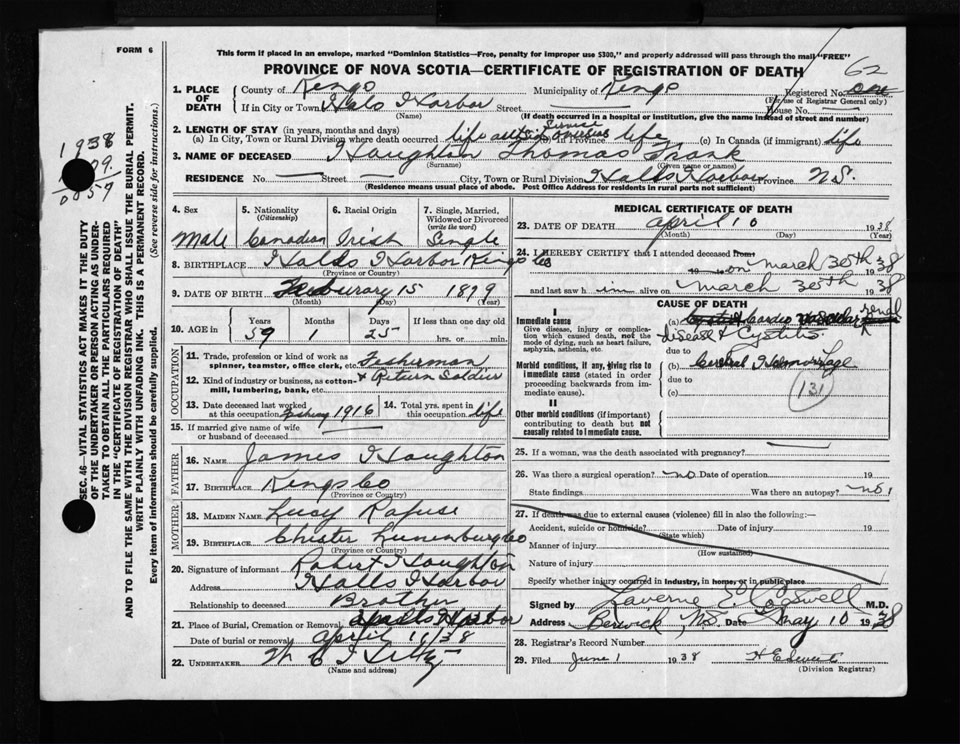 FORM 6
This form if placed in an envelope, marked "Dominion Statistics—Free, penalty for improper use $300," and properly addressed will pass through the mail "FREE"
PROVINCE OF NOVA SCOTIA—CERTIFICATE OF REGISTRATION OF DEATH
62
1. PLACE OF DEATH County of Kings Municipality of Kings Registered No.
(For use of Registrar General only)
If in City or Town Halls Harbor Street House No.
(Name) (If death occurred in a hospital or institution, give the name instead of street and number)
2. LENGTH OF STAY (in years, months and days)
(a) In City, Town or Rural Division where death occurred life Service overseas (b) In Province life (c) In Canada (if immigrant) life
3. NAME OF DECEASED Houghton Thomas Frank
(Surname) (Given name or names)
RESIDENCE No. Street City, Town or Rural Division Halls Harbor Province N.S.
(Residence means usual place of abode. Post Office Address for residents in rural parts not sufficient)
1938
09.
0859
SEC. 46—VITAL STATISTICS ACT MAKES IT THE DUTY
OF THE UNDERTAKER OR PERSON ACTING AS UNDER-
TAKER TO OBTAIN ALL THE PARTICULARS REQUIRED
IN THE "CERTIFICATE OF REGISTRATION OF DEATH"
AND TO FILE THE SAME WITH THE DIVISION REGISTRAR WHO SHALL ISSUE THE BURIAL PERMIT.
WRITE PLAINLY WITH UNFADING INK. THIS IS A PERMANENT RECORD.
Every item of information should be carefully supplied. (See reverse side for instructions.)
4. Sex Male
5. Nationality (Citizenship) Canadian
6. Racial Origin Irish
7. Single, Married, Widowed or Divorced (write the word) Single
8. BIRTHPLACE Halls Harbor Kings Co
(Province or Country)
9. DATE OF BIRTH Feburary 15 1879
(Month) (Day) (Year)
10. AGE in Years Months Days If less than one day old
59 1 25 hrs. or min.
OCCUPATION
11. Trade, profession or kind of work as spinner, teamster, office clerk, etc. Fisherman
12. Kind of industry or business, as cotton-mill, lumbering, bank, etc. + Return Soldier
13. Date deceased last worked at this occupation Fishing 1916
14. Total yrs. spent in this occupation life
15. If married give name of wife or husband of deceased
FATHER
16. NAME James Houghton
17. BIRTHPLACE Kings Co
(Province or Country)
MOTHER
18. MAIDEN NAME Lucy Rafuse
19. BIRTHPLACE Chester Lunenburg Co
(Province or Country)
20. Signature of informant Robert Houghton
Address Halls Harbor
Relationship to deceased Brother
21. Place of Burial, Cremation or Removal Halls Harbor
Date of burial or removal April 11/38
22. UNDERTAKER
(Name and address)
MEDICAL CERTIFICATE OF DEATH
23. DATE OF DEATH April 10 1938
(Month) (Day) (Year)
24. I HEREBY CERTIFY that I attended deceased from
on March 30th 38
and last saw him alive on March 30th 1938
CAUSE OF DEATH
I
Immediate cause
Give disease, injury or complication which caused death, not the mode of dying, such as heart failure, asphyxia, asthenia, etc.
(a) Cardio vascular renal
disease + Cystitis
due to
Morbid conditions, if any, giving rise to immediate cause (stated in order proceeding backwards from immediate cause)
(b) Cerebral Hemorrhage
due to
(c)
131
II
Other morbid conditions (if important) contributing to death but not causally related to immediate cause.
25. If a woman, was the death associated with pregnancy?
26. Was there a surgical operation? no Date of operation 19
State findings Was there an autopsy? no
27. If death was due to external causes (violence) fill in also the following:—
Accident, suicide or homicide? Date of injury 19
(State which)
Manner of injury
(How sustained)
Nature of injury
Specify whether injury occurred in industry, in home, or in public place
Signed by Laverne E Cogswell M.D.
Address Berwick, N.S. Date May 10 1938
28. Registrar's Record Number
29. Filed June 1 1938
(Division Registrar)